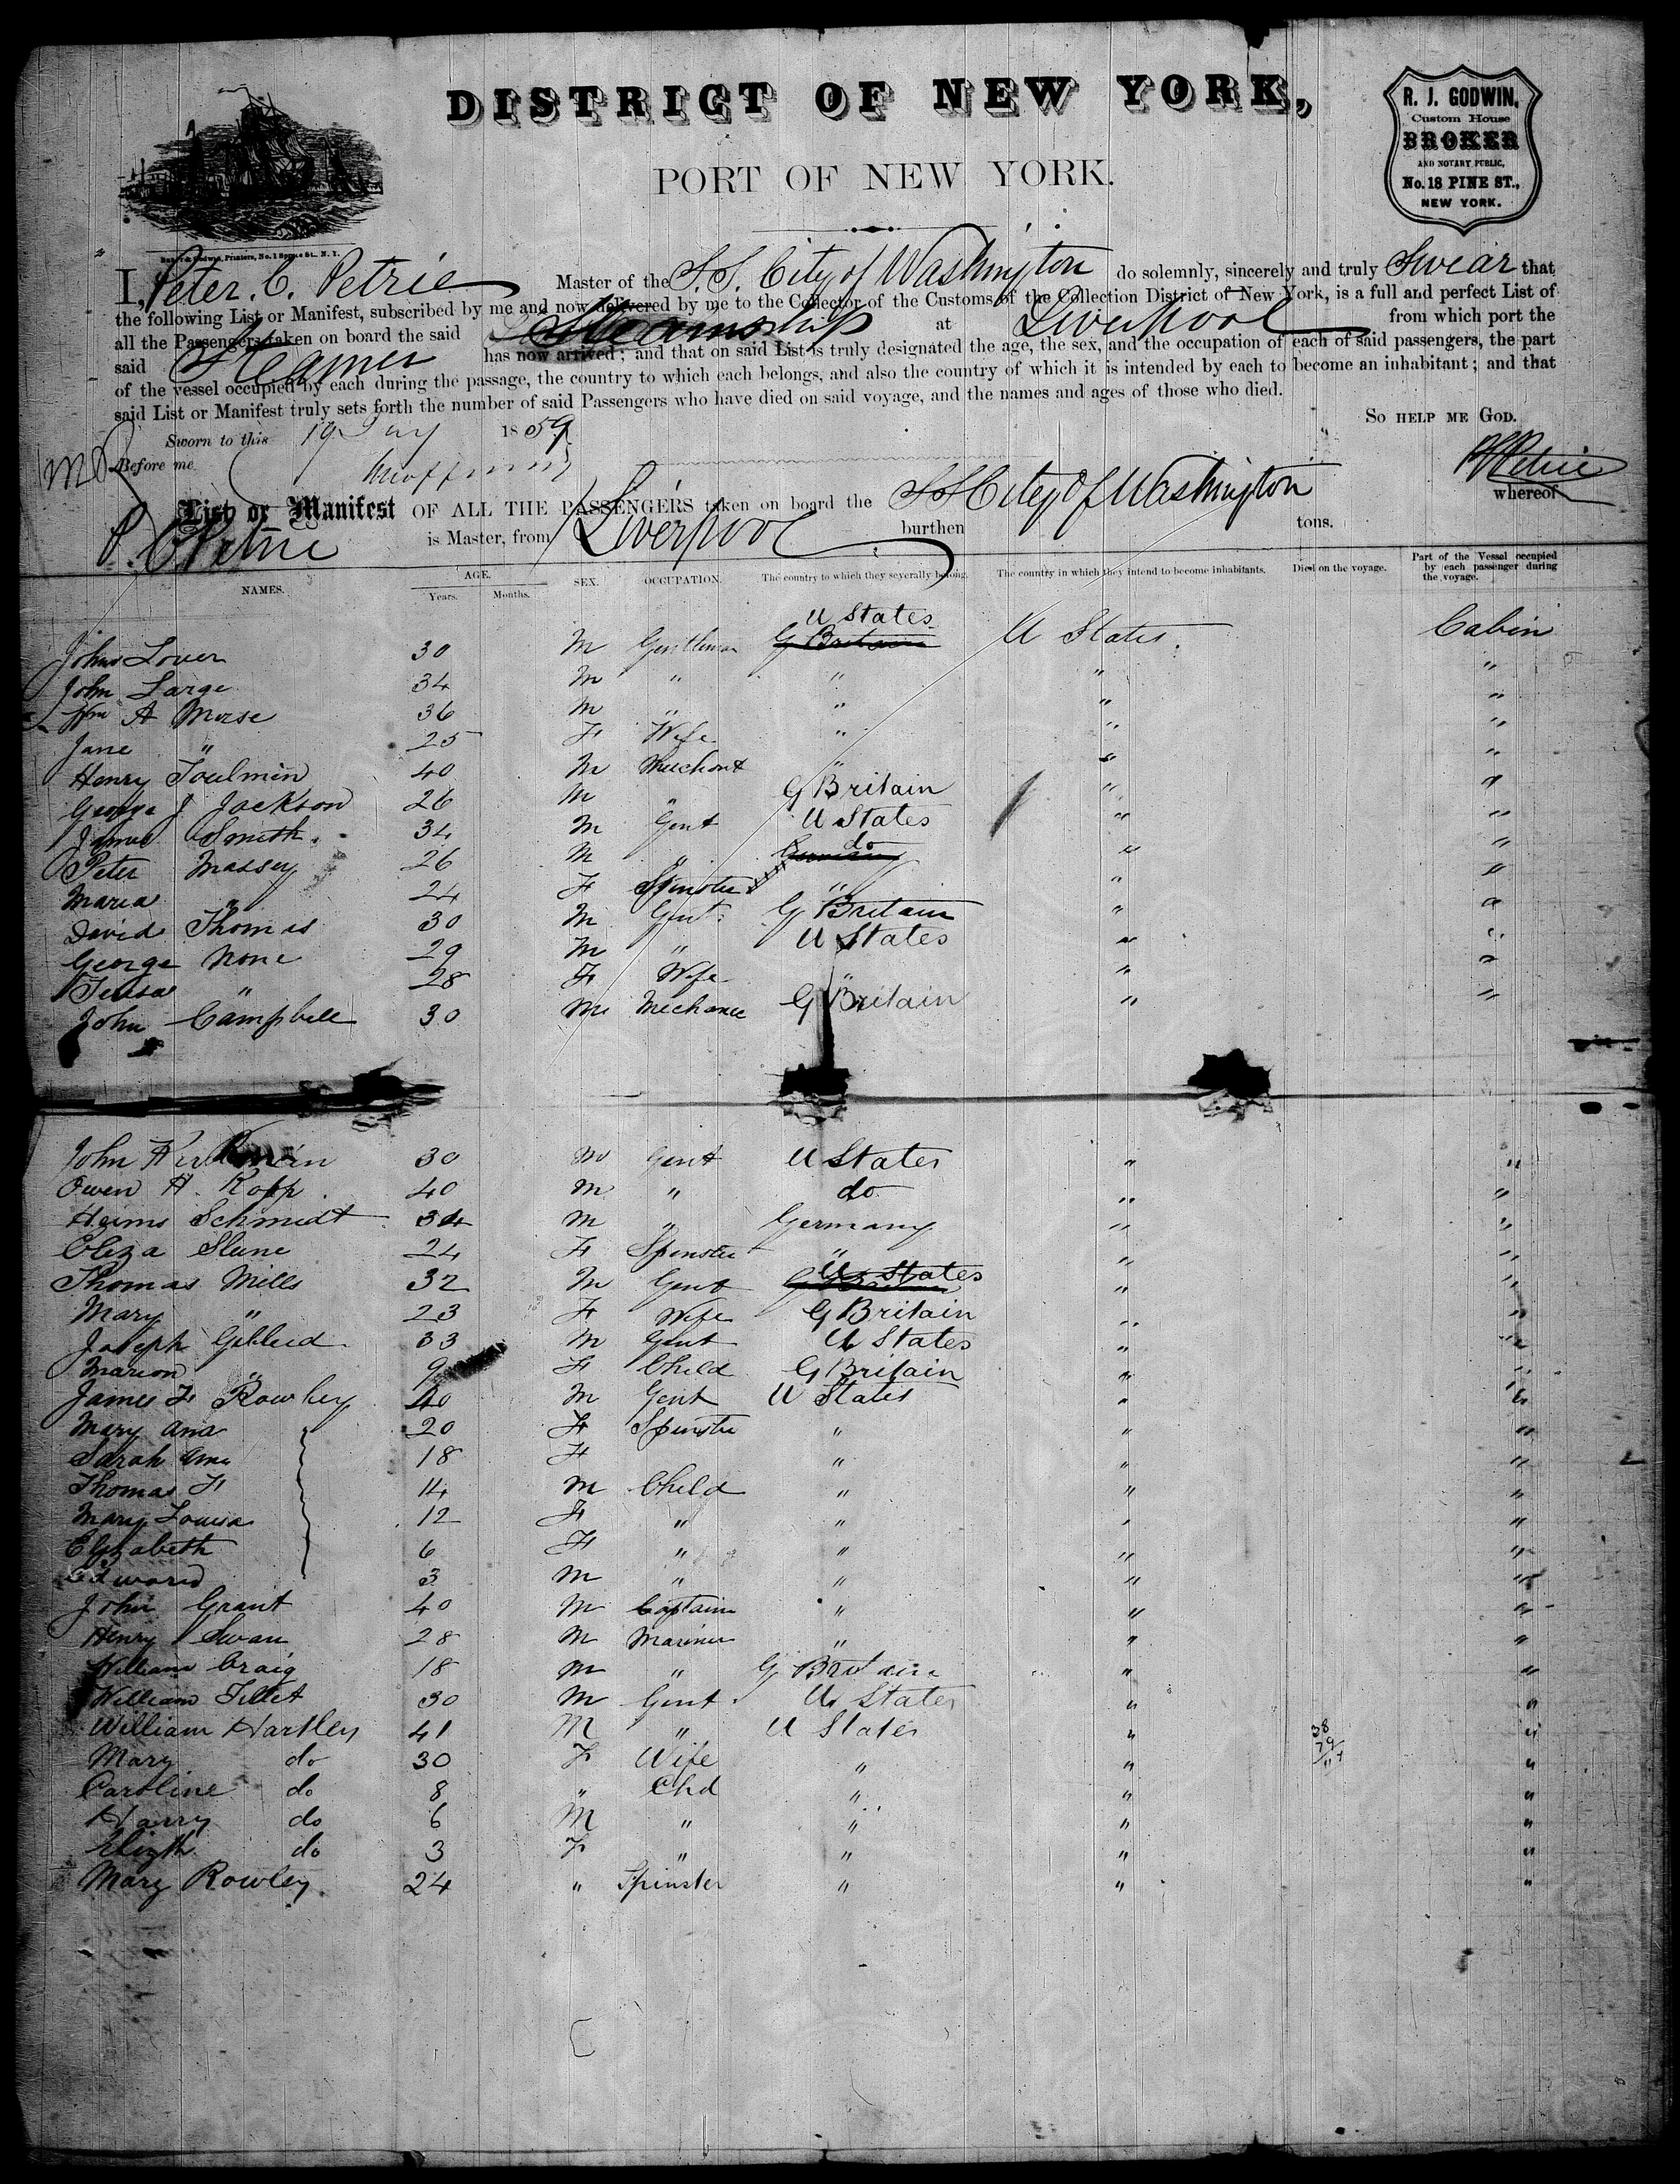 DISTRICT OF NEW YORK,
PORT OF NEW YORK.
R. J. GODWIN,
Custom House
BROKER
AND NOTARY PUBLIC,
No. 18 PINE ST.,
NEW YORK.
Baker & Godwin, Printers, No. 1 Spruce St., N. Y.
I, Peter. C. Petrie Master of the S.S. City of Washington do solemnly, sincerely and truly Swear that
the following List or Manifest, subscribed by me and now delivered by me to the Collector of the Customs of the Collection District of New York, is a full and perfect List of
all the Passengers taken on board the said Steamship at Liverpool from which port the
said Steamer has now arrived; and that on said List is truly designated the age, the sex, and the occupation of each of said passengers, the part
of the vessel occupied by each during the passage, the country to which each belongs, and also the country of which it is intended by each to become an inhabitant; and that
said List or Manifest truly sets forth the number of said Passengers who have died on said voyage, and the names and ages of those who died.
SO HELP ME GOD.
Sworn to this 19 1859
Before me
Petrie
List or Manifest OF ALL THE PASSENGERS taken on board the SS City of Washington whereof
P. C Petrie is Master, from Liverpool burthen tons.
NAMES. AGE. Years. Months. SEX. OCCUPATION. The country to which they severally belong. The country in which they intend to become inhabitants. Died on the voyage. Part of the Vessel occupied by each passenger during the voyage.
U States
John Lover 30 M Gentleman G Britain U States. Cabin
John Large 34 M " " " "
Wm A Morse 36 M " " " "
Jane " 25 F Wife " " "
Henry Toulmin 40 M Merchant " " "
George J Jackson 26 M " G Britain " "
James Smith 34 M Gent U States " "
Peter Massey 26 M " do " "
Maria " 24 F Spinster " " "
David Thomas 30 M Gent G Britain " "
George None 29 M " U States " "
" 28 F Wife " " "
John Campbell 30 M Mechanic G Britain " "
John 30 M Gent U States " "
Owen H. Kopp 40 M " do " "
Schmidt 34 M " Germany " "
Eliza Slune 24 F Spinster " " "
Thomas Mills 32 M Gent U States " "
Mary " 23 F Wife G Britain " "
Joseph 33 M Gent U States " "
Marion " 9 F Child G Britain " "
James F Rowley 40 M Gent U States " "
Mary Ana 20 F Spinster " " "
Sarah Ann 18 F " " "
Thomas F 14 M Child " " "
Mary Louisa 12 F " " " "
Elizabeth 6 F " " " "
Edward 3 M " " " "
John Grant 40 M Captain " " "
Henry Swan 28 M Mariner " " "
William Craig 18 M " G Britain " "
William Tillet 30 M Gent U. States " "
William Hartley 41 M " U States " "
Mary do 30 F Wife " " "
Caroline do 8 " Chd " " "
Harry do 6 M " " " "
Elizth do 3 F " " " "
Mary Rowley 24 " Spinster " " "